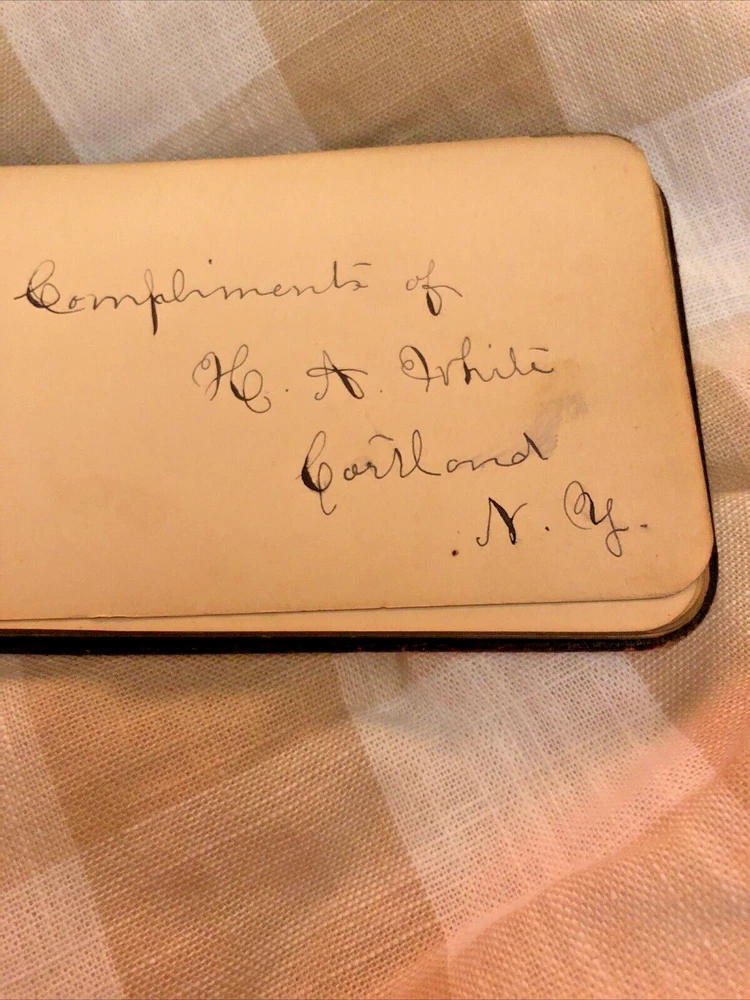 Compliments of
H. A. White
Cortland
N. Y.